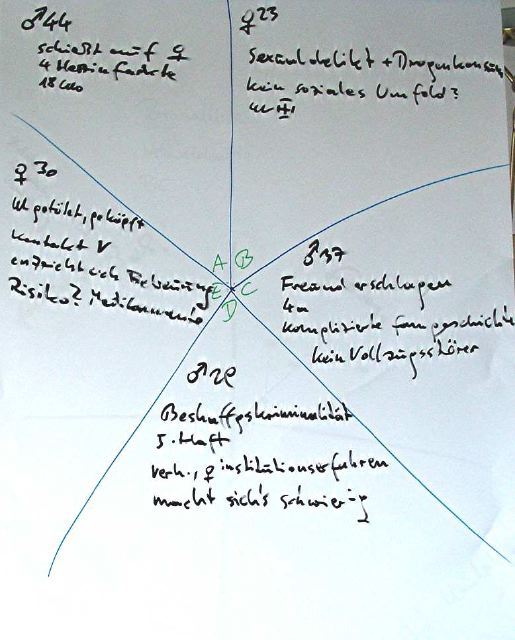 ♂44
schießt auf ♀
4 Messer
♀23
Sexualdelikt + Drogenkonsum
kein soziales Umfeld?
♀30
getötet, geköpft
Kontakt V
entzieht sich Betreuung
Risiko? Medikamente
A B
E C
D
♂37
Freund erschlagen
komplizierte Famgeschichte
kein Vollzugsstörer
♂28
Beschaffgskriminalität
5. Haft
verh., ♀ institutionserfahren
macht sich's schwierig